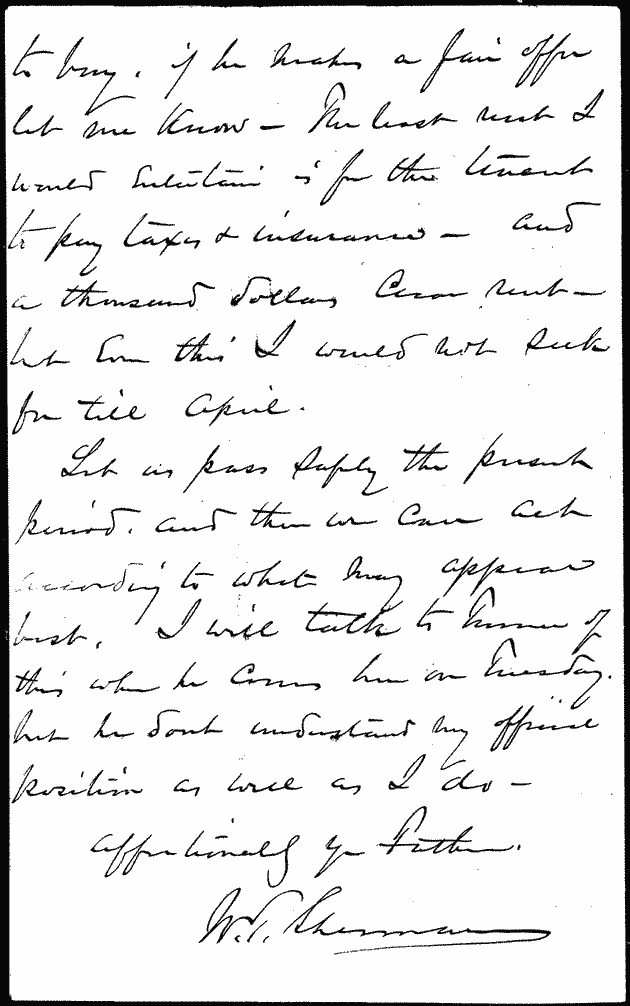 to buy. if he makes a fair offer
let me Know — The least rent I
would entertain is for the tenant
to pay taxes & insurance — and
a thousand dollars Cash rent —
but Even this I would not seek
for till April.
Let us pass safely the present
period. and then we Can act
according to what may appear
best. I will talk to of
this when he Comes here on Tuesday.
but he dont understand my official
position as well as I do —
affectionately yr Father.
W. T. Sherman